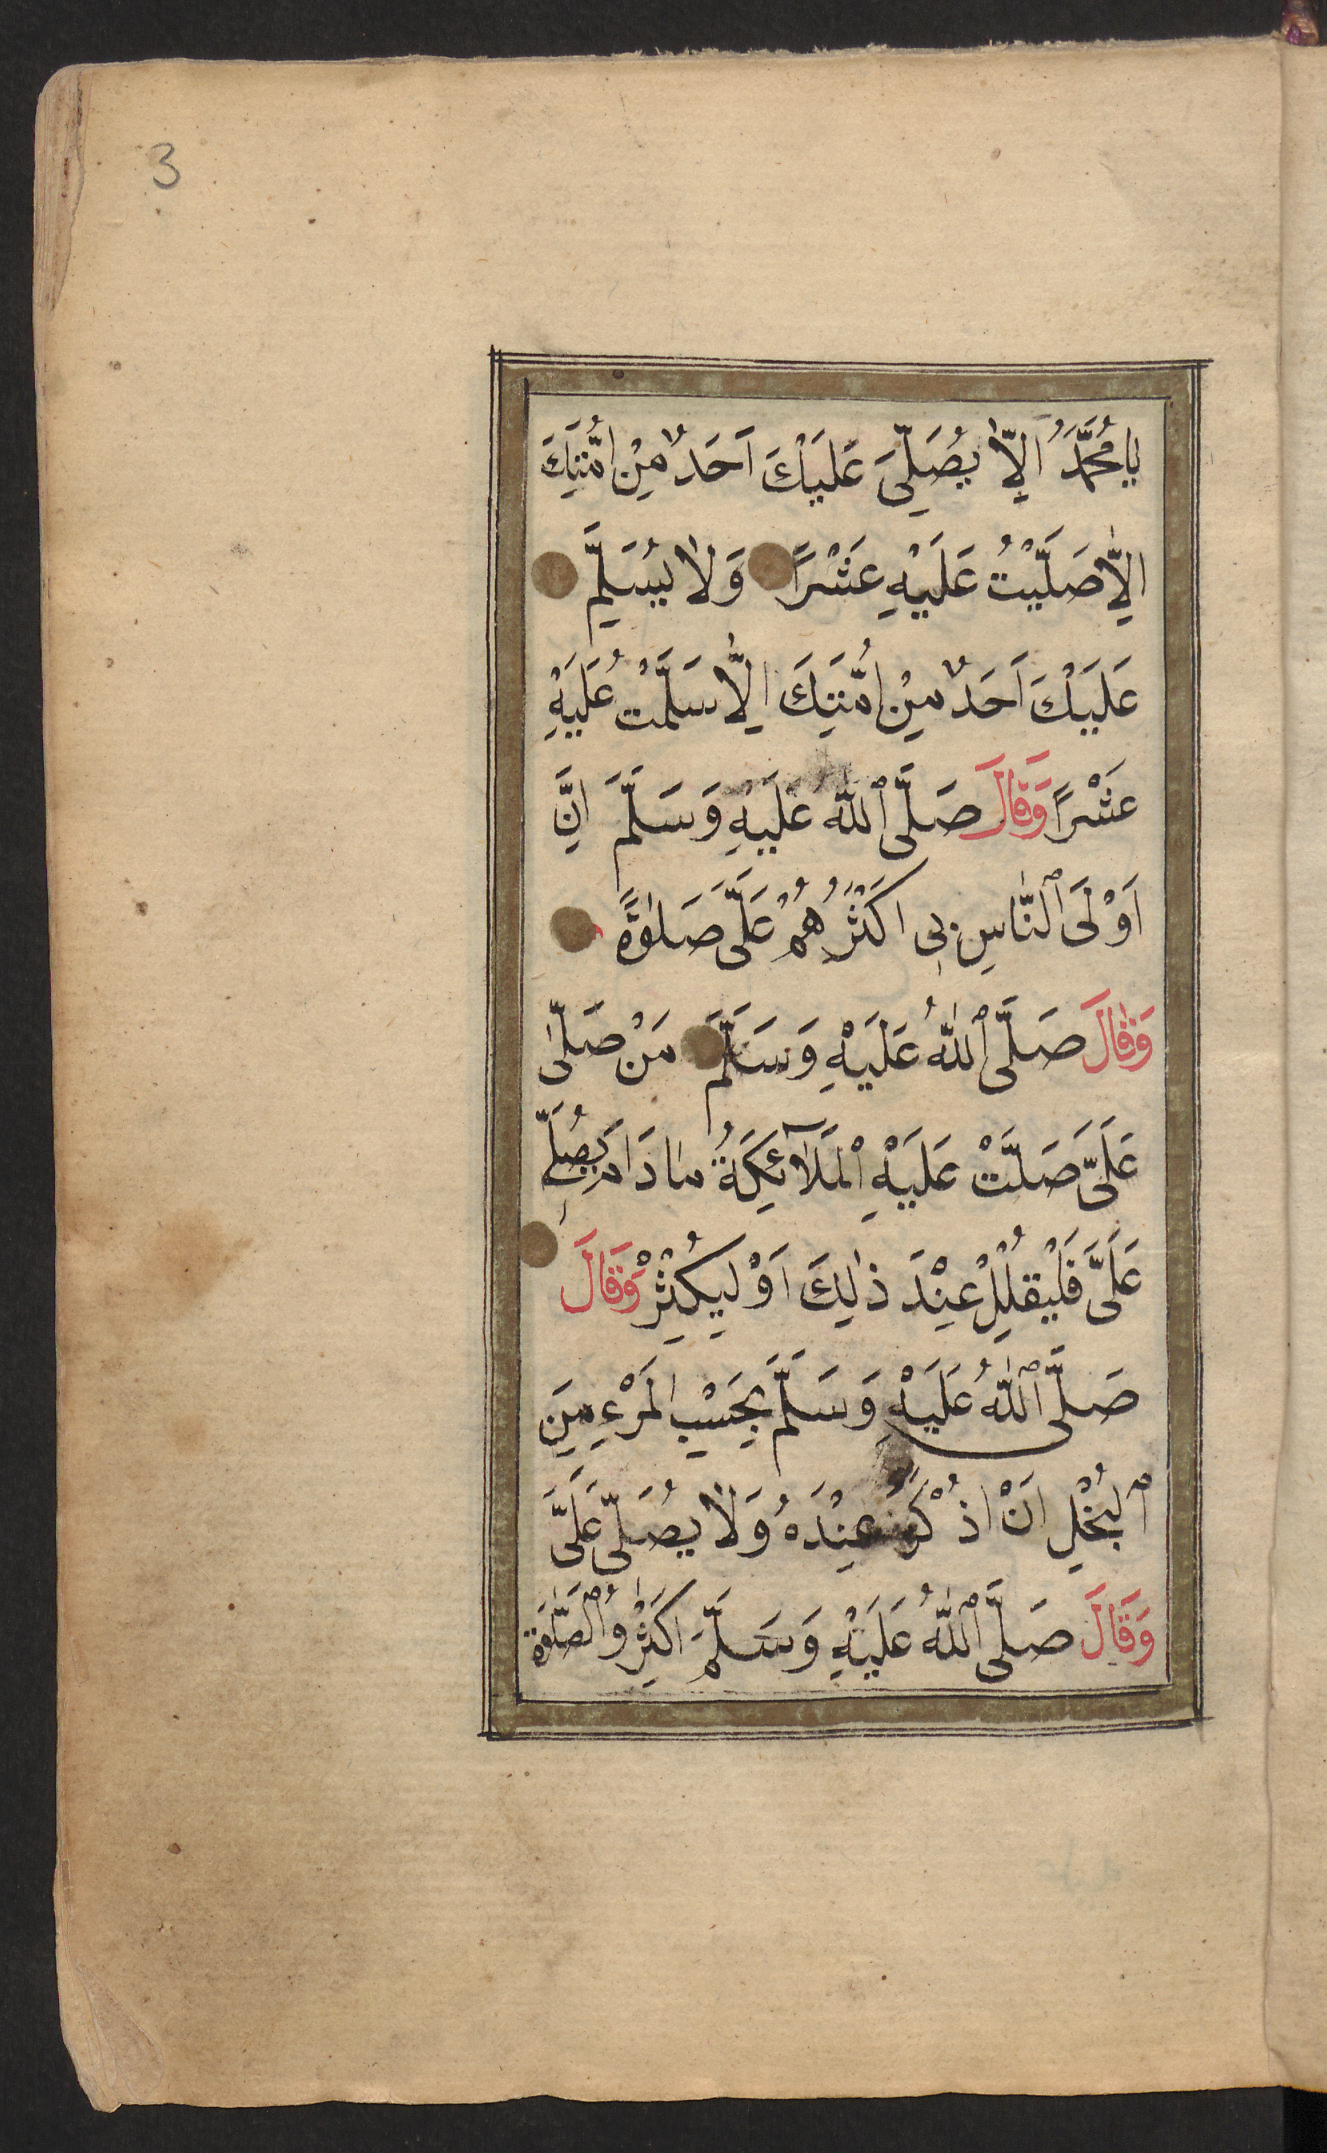 3
يَا مُحَمَّدُ اَلَّا يُصَلِّىَ عَلَيْكَ اَحَدٌ مِنْ اُمَّتِكَ
اِلَّا صَلَّيْتُ عَلَيْهِ عَشْرًا وَلَا يُسَلِّمَ
عَلَيْكَ اَحَدٌ مِنْ اُمَّتِكَ اِلَّا سَلَّمْتُ عَلَيْهِ
عَشْرًا وَقَالَ صَلَّى ٱللّٰه عَلَيْهِ وَسَلَّمَ اِنَّ
اَوْلَى ٱلنَّاسِ بِى اَكْثَرُهُمْ عَلَىَّ صَلٰوةً
وَقَالَ صَلَّى ٱللّٰهُ عَلَيْهِ وَسَلَّمَ مَنْ صَلّٰى
عَلَىَّ صَلَّتْ عَلَيْهِ الْمَلَآئِكَةُ مَا دَامَ يُصَلِّى
عَلَىَّ فَلْيُقْلِلْ عِنْدَ ذٰلِكَ اَوْ لِيُكْثِرْ وَقَالَ
صَلَّى ٱللّٰهُ عَلَيْهِ وَسَلَّمَ بِحَسْبِ الْمَرْءِ مِنَ
ٱلْبُخْلِ اَنْ اُذْكَرَ عِنْدَهُ وَلَا يُصَلِّى عَلَىَّ
وَقَالَ صَلَّى ٱللّٰهُ عَلَيْهِ وَسَلَّمَ اَكْثِرُوا ٱلصَّلٰوةَ